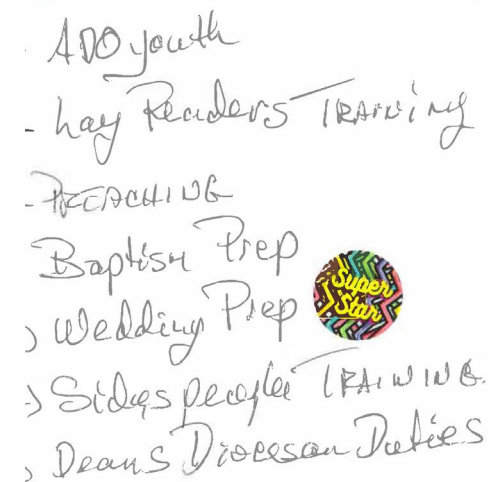 - ADO youth
- Lay Readers TRAINING
- PREACHING
Baptism Prep
Wedding Prep
Super
Star
Sidespeople TRAINING.
Deans Diocesan Duties